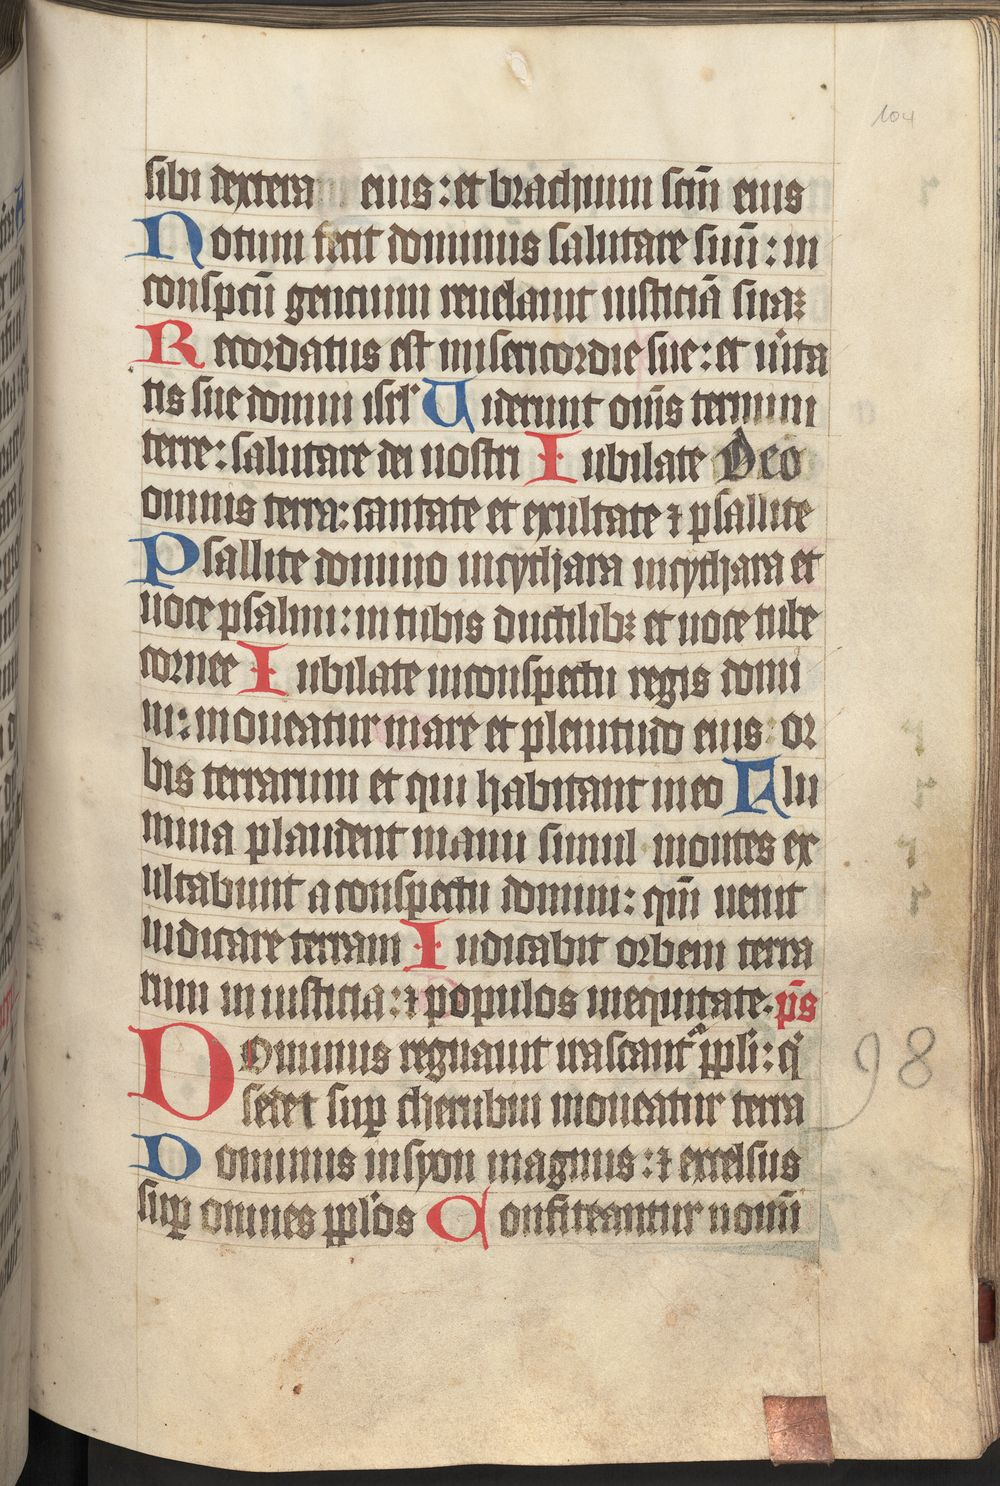 104
sibi dextera eius: et brachium scm̄ eius
Notum fecit dominus salutare suū: in
conspctū gencium reuelauit iusticiā suaꝫ
Recordatus est misericordie sue: et uita
tis sue domui isrl' Uiderunt om̄s termini
terre: salutare dei nostri Iubilate Deo
omnis terra: cantate et exultate ⁊ psallite
Psallite domino incythara incythara et
uoce psalmi: in tubis ductilibꝫ et uoce tube
cornee Iubilate inconspectu regis domi
ni: moueatur mare et plenitudo eius: or
bis terrarum et qui habitant ineo Flu
mina plaudent manu simul montes ex
ultabunt aconspectu domini: qm̄ uenit
iudicare terram Iudicabit orbem terra
rum in iusticia: ⁊ populos inequitate. p̄s
Dominus regnauit irascant᷑ ppl'i: q'
98
sedet sup cherubin moueatur terra
Dominus insyon magnus: ⁊ excelsus
sup omnes ppl'os Confiteantur nomī